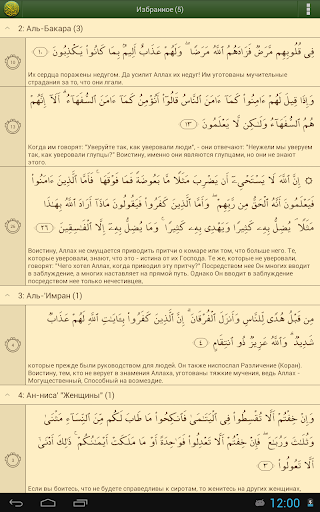 Избранное (5)
2: Аль-Бакара (3)
فِى قُلُوبِهِم مَّرَضٌ فَزَادَهُمُ ٱللَّهُ مَرَضًا ۖ وَلَهُمْ عَذَابٌ أَلِيمٌۢ بِمَا كَانُوا۟ يَكْذِبُونَ ١٠
Их сердца поражены недугом. Да усилит Аллах их недуг! Им уготованы мучительные
страдания за то, что они лгали.
وَإِذَا قِيلَ لَهُمْ ءَامِنُوا۟ كَمَآ ءَامَنَ ٱلنَّاسُ قَالُوٓا۟ أَنُؤْمِنُ كَمَآ ءَامَنَ ٱلسُّفَهَآءُ ۗ أَلَآ إِنَّهُمْ
هُمُ ٱلسُّفَهَآءُ وَلَٰكِن لَّا يَعْلَمُونَ ١٣
Когда им говорят: "Уверуйте так, как уверовали люди", - они отвечают: "Неужели мы уверуем
так, как уверовали глупцы?" Воистину, именно они являются глупцами, но они не знают
этого.
۞ إِنَّ ٱللَّهَ لَا يَسْتَحْىِۦٓ أَن يَضْرِبَ مَثَلًا مَّا بَعُوضَةً فَمَا فَوْقَهَا ۚ فَأَمَّا ٱلَّذِينَ ءَامَنُوا۟
فَيَعْلَمُونَ أَنَّهُ ٱلْحَقُّ مِن رَّبِّهِمْ ۖ وَأَمَّا ٱلَّذِينَ كَفَرُوا۟ فَيَقُولُونَ مَاذَآ أَرَادَ ٱللَّهُ بِهَٰذَا
مَثَلًا ۘ يُضِلُّ بِهِۦ كَثِيرًا وَيَهْدِى بِهِۦ كَثِيرًا ۚ وَمَا يُضِلُّ بِهِۦٓ إِلَّا ٱلْفَٰسِقِينَ ٢٦
Воистину, Аллах не смущается приводить притчи о комаре или том, что больше него. Те,
которые уверовали, знают, что это - истина от их Господа. Те же, которые не уверовали,
говорят: "Чего хотел Аллах, когда приводил эту притчу?" Посредством нее Он многих вводит
в заблуждение, а многих наставляет на прямой путь. Однако Он вводит в заблуждение
посредством нее только нечестивцев,
3: Аль-'Имран (1)
مِن قَبْلُ هُدًى لِّلنَّاسِ وَأَنزَلَ ٱلْفُرْقَانَ ۗ إِنَّ ٱلَّذِينَ كَفَرُوا۟ بِـَٔايَٰتِ ٱللَّهِ لَهُمْ عَذَابٌ
شَدِيدٌ ۗ وَٱللَّهُ عَزِيزٌ ذُو ٱنتِقَامٍ ٤
которые прежде были руководством для людей. Он также ниспослал Различение (Коран).
Воистину, тем, кто не верует в знамения Аллаха, уготованы тяжкие мучения, ведь Аллах -
Могущественный, Способный на возмездие.
4: Ан-ниса' "Женщины" (1)
وَإِنْ خِفْتُمْ أَلَّا تُقْسِطُوا۟ فِى ٱلْيَتَٰمَىٰ فَٱنكِحُوا۟ مَا طَابَ لَكُم مِّنَ ٱلنِّسَآءِ مَثْنَىٰ
وَثُلَٰثَ وَرُبَٰعَ ۖ فَإِنْ خِفْتُمْ أَلَّا تَعْدِلُوا۟ فَوَٰحِدَةً أَوْ مَا مَلَكَتْ أَيْمَٰنُكُمْ ۚ ذَٰلِكَ أَدْنَىٰٓ
أَلَّا تَعُولُوا۟ ٣
Если вы боитесь, что не будете справедливы к сиротам, то женитесь на других женщинах,
12:00